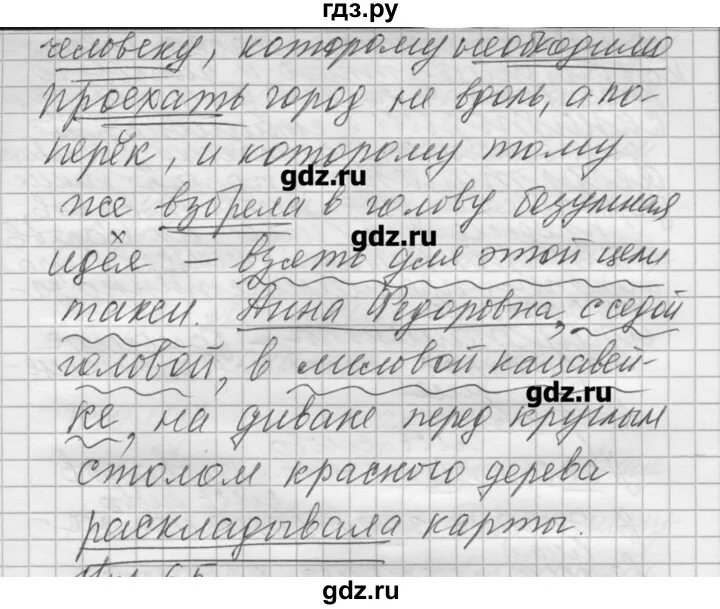 гдз.ру
человеку, которому необходимо
проехать город не вдоль, а по-
перёк, и которому тому
gdz.ru
же взбрела в голову безумная
gdz.ru
идея — взять для этой цели
такси. Анна Федоровна, с седой
головой, в меловой кацавей-
gdz.ru
ке, на диване перед круглым
столом красного дерева
раскладывала карты.
gdz.ru